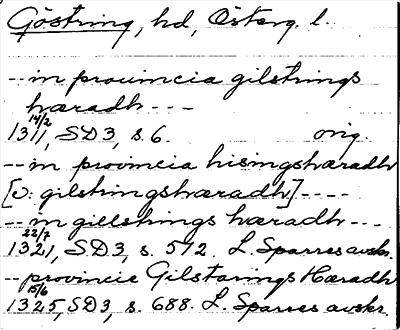 Göstring, hd, Österg. l.
-- in prouincia gilstrings
hæradh ---
14/2
1311, SD3, s. 6. orig.
-- in provincia hisingshæradh
[ɔ: gilstringshæradh] ----
-- in gillstrings hæradh ---
22/7
1321, SD3, s. 512. L. Sparres avskr.
-- provincie Gilstarings Hæradh
15/6
1325, SD3, s. 688. L. Sparres avskr.